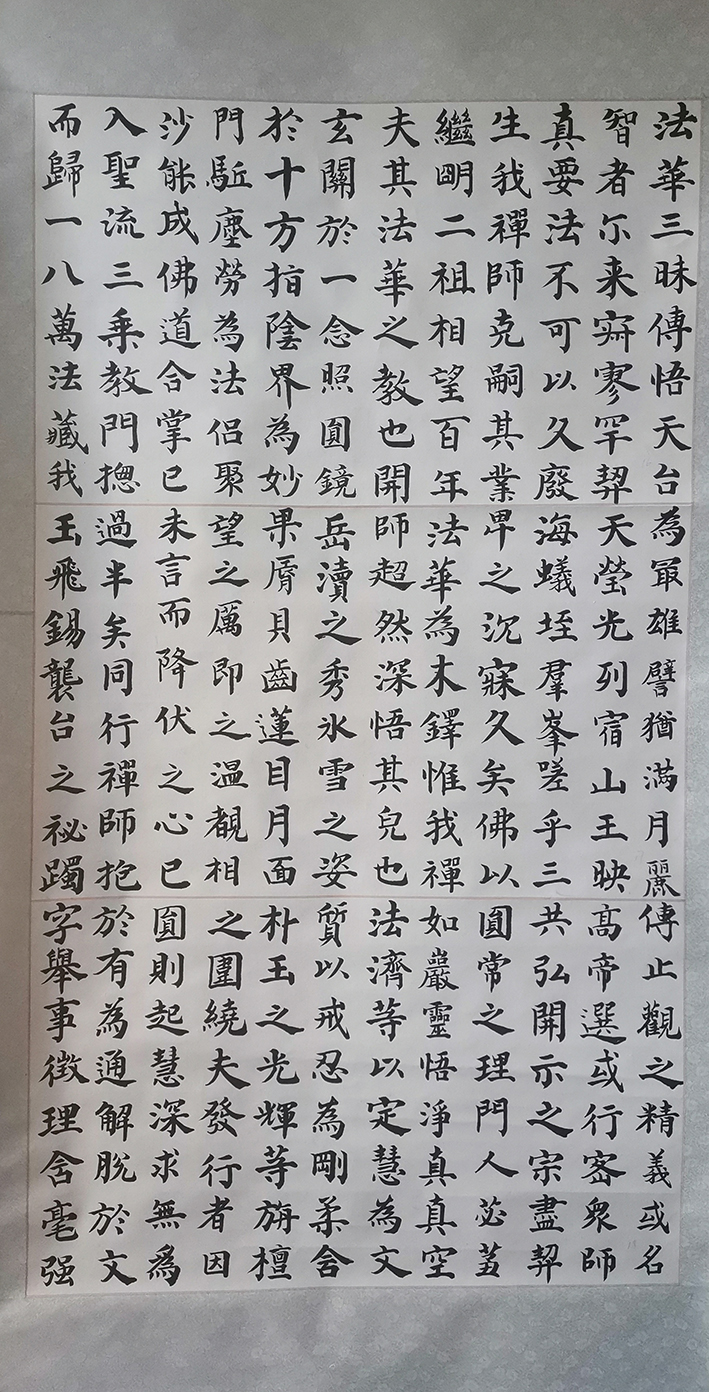 法華三昧傳悟天台
智者尓来寂寥罕契
真要法不可以久廢
生我禪師克嗣其業
繼明二祖相望百年
夫其法華之教也開
玄關於一念照圓鏡
於十方指陰界為妙
門駈塵勞為法侣聚
沙能成佛道合掌已
入聖流三乗教門揔
而歸一八萬法藏我
為冣雄譬猶滿月麗
天瑩光列宿山王映
海蟻垤羣峯嗟乎三
界之沉寐久矣佛以
法華為木鐸惟我禪
師超然深悟其皃也
岳瀆之秀氷雪之姿
果脣貝齒蓮目月面
望之厲即之温覩相
未言而降伏之心已
過半矣同行禪師抱
玉飛錫襲台之祕躅
傳止觀之精義或名
高帝選或行密衆師
共弘開示之宗盡契
圓常之理門人苾蒭
如巖靈悟淨真真空
法濟等以定慧為文
質以戒忍為剛柔含
朴玉之光輝等旃檀
之圍繞夫發行者因
圓則起慧深求無為
於有為通解脫於文
字舉事徵理含毫强